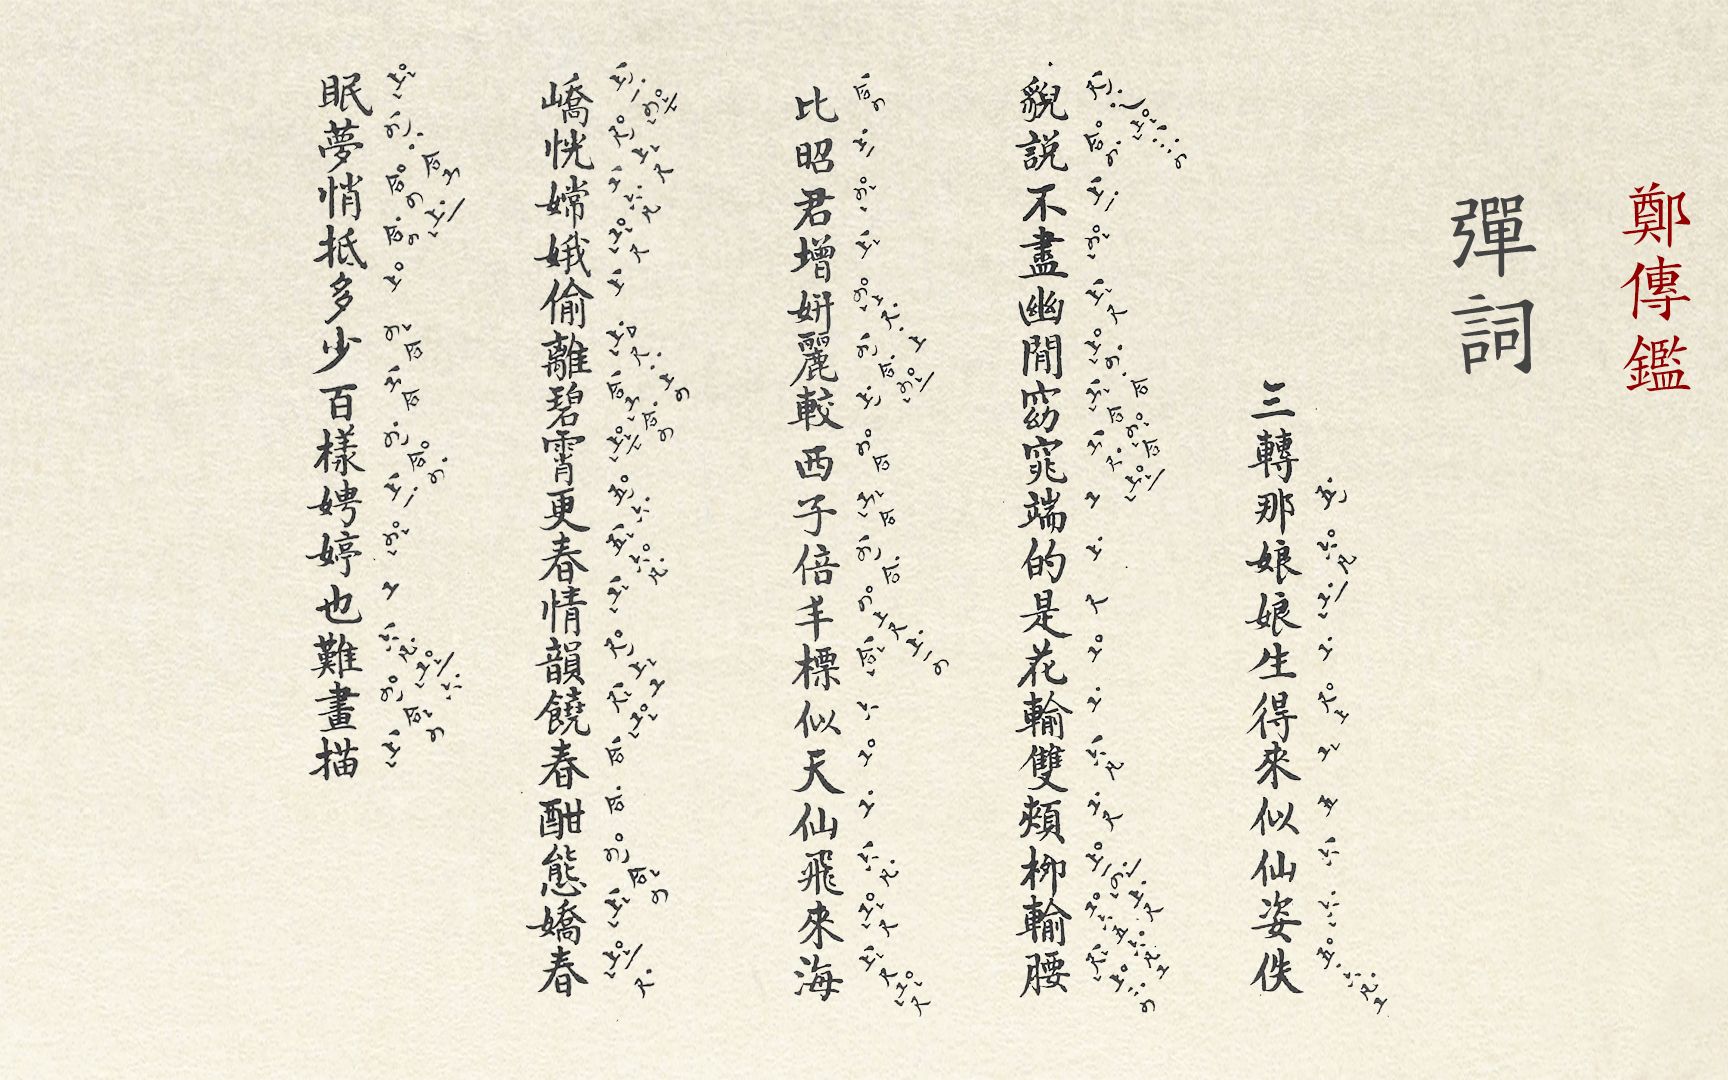 鄭傳鑑
彈詞
三轉那娘娘生得來似仙姿佚
貌說不盡幽閒窈窕端的是花輸雙頰柳輸腰
比昭君增妍麗較西子倍丰標似天仙飛來海
嶠恍嫦娥偷離碧霄更春情韻饒春酣態嬌春
眠夢悄抵多少百樣娉婷也難畫描